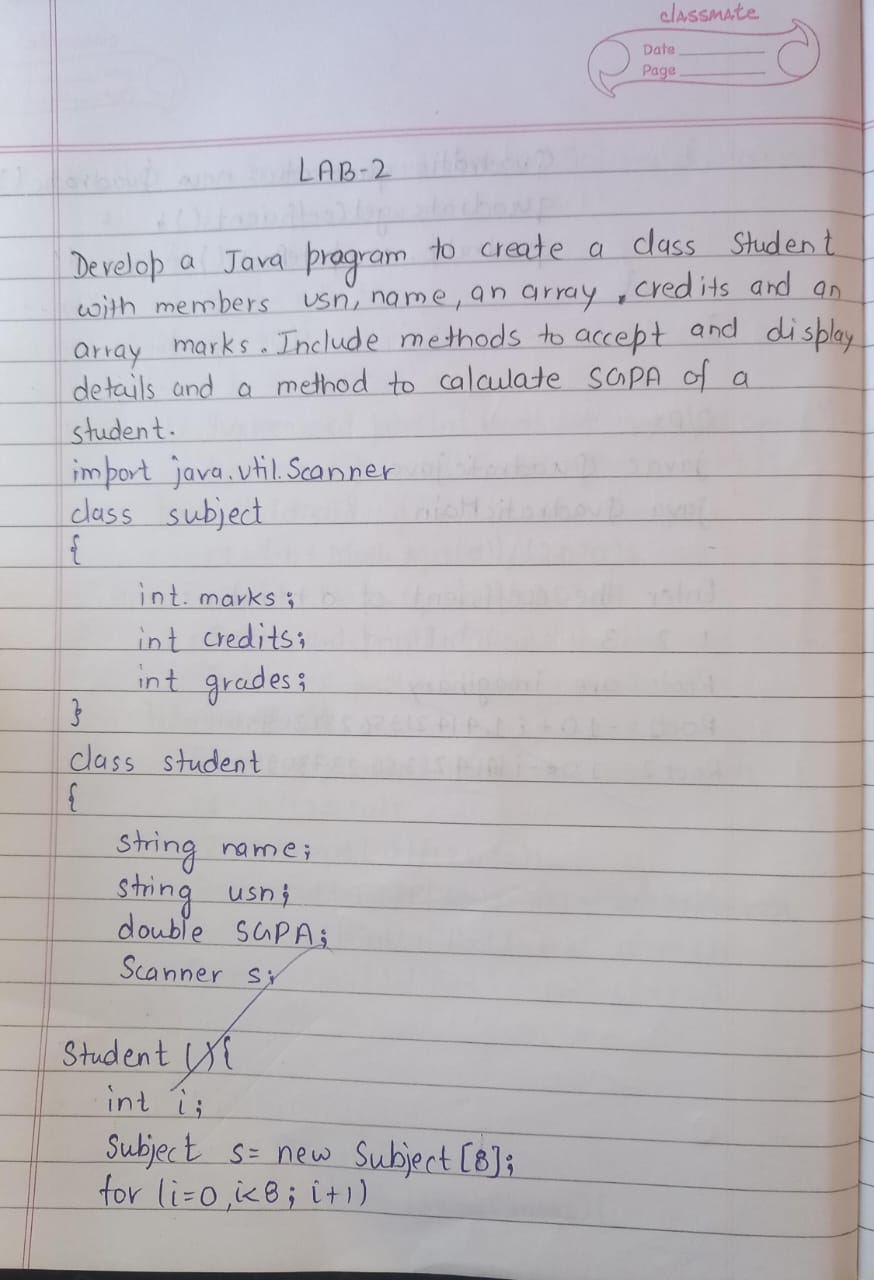 classmate
Date
Page
LAB-2
Develop a Java program to create a class Student
with members usn, name, an array, credits and an
array marks. Include methods to accept and display
details and a method to calculate SGPA of a
student.
import java.util.Scanner
class subject
{
int. marks;
int credits;
int grades;
}
class student
{
string name;
string usn;
double SGPA;
Scanner s;
Student (){
int i;
Subject s= new Subject [8];
for (i=0,i<8; i+1)